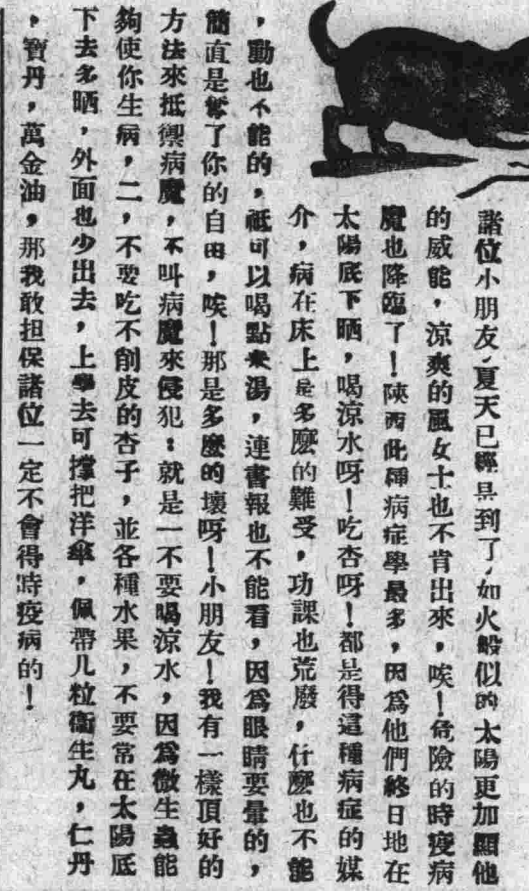 諸位小朋友，夏天已經是到了，如火般似的太陽更加顯他
的威能，涼爽的風女士也不肯出來，唉！危險的時疫病
魔也降臨了！陝西此種病症學最多，因爲他們終日地在
太陽底下晒，喝涼水呀！吃杏呀！都是得這種病症的媒
介，病在床上是多麽的難受，功課也荒廢，什麽也不能
，動也不能的，祗可以喝點米湯，連書報也不能看，因爲眼睛要暈的，
簡直是奪了你的自由，唉！那是多麽的壞呀！小朋友！我有一樣頂好的
方法來抵禦病魔，不叫病魔來侵犯：就是一不要喝涼水，因爲微生蟲能
夠使你生病，二，不要吃不削皮的杏子，並各種水果，不要常在太陽底
下去多晒，外面也少出去，上學去可撐把洋傘，佩帶几粒衞生丸，仁丹
，寶丹，萬金油，那我敢担保諸位一定不會得時疫病的！